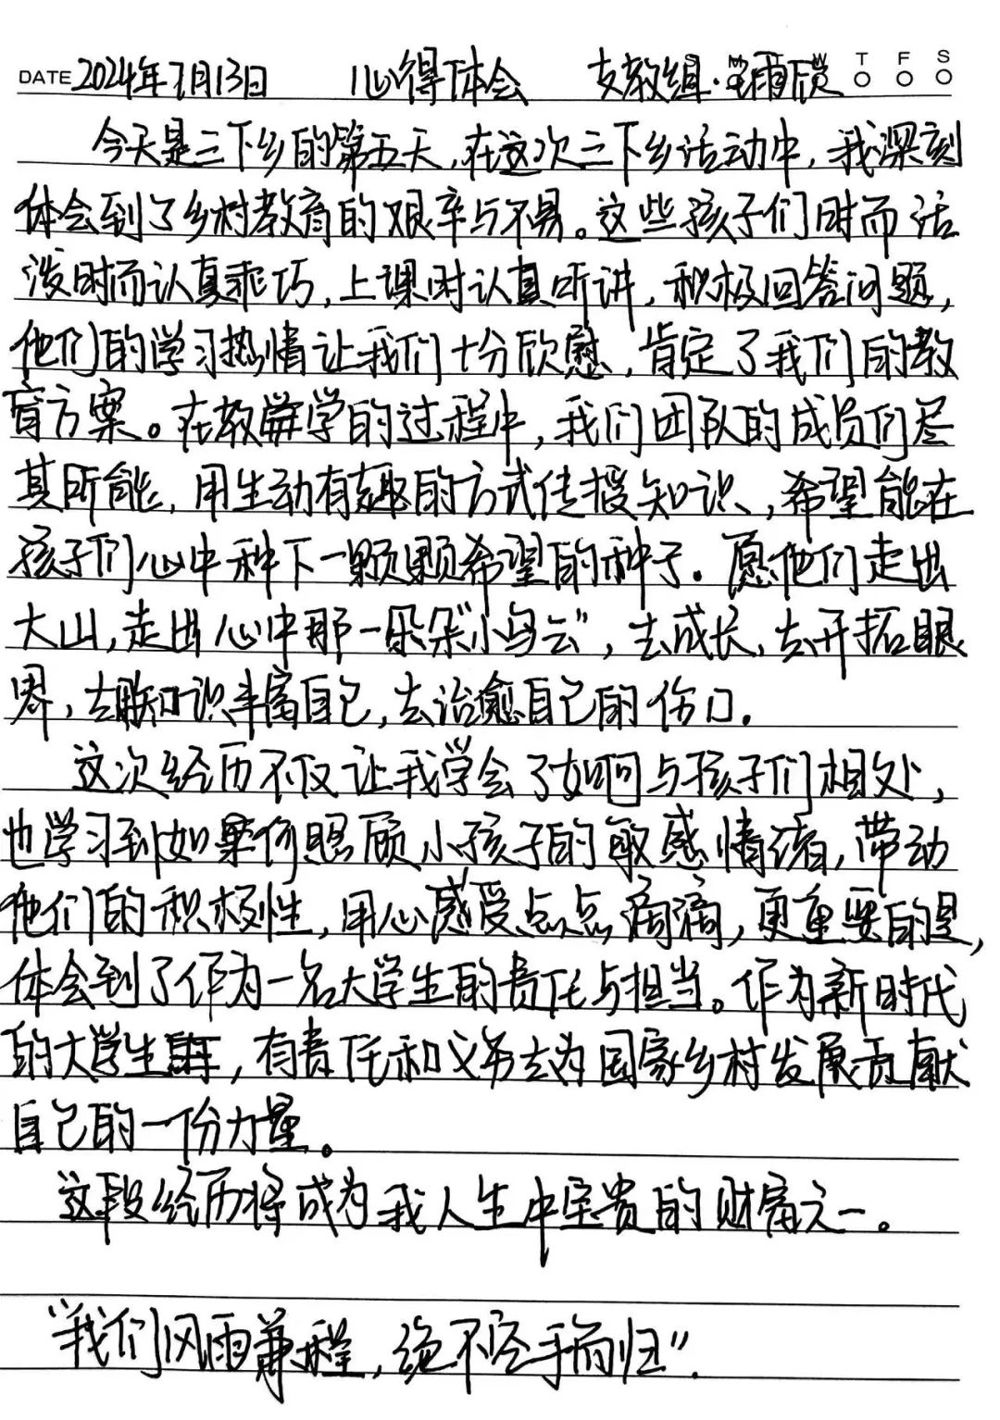 DATE 2024年7月13日 心得体会 支教组· 雨欣 T F S
今天是三下乡的第五天,在这次三下乡活动中,我深刻
体会到了乡村教育的艰辛与不易。这些孩子们时而活
泼时而认真乖巧,上课时认真听讲,积极回答问题,
他们的学习热情让我们十分欣慰,肯定了我们的教
育方案。在教学的过程中,我们团队的成员们尽
其所能,用生动有趣的方式传授知识,希望能在
孩子们心中种下一颗颗希望的种子.愿他们走出
大山,走出心中那一朵朵“小乌云”,去成长,去开拓眼
界,去用知识丰富自己,去治愈自己的伤口.
这次经历不仅让我学会了如何与孩子们相处,
也学习到如何照顾小孩子的敏感情绪,带动
他们的积极性,用心感受点点滴滴,更重要的是,
体会到了作为一名大学生的责任与担当。作为新时代
的大学生,有责任和义务去为国家乡村发展贡献
自己的一份力量。
这段经历将成为我人生中宝贵的财富之一。
“我们风雨兼程,绝不空手而归”.